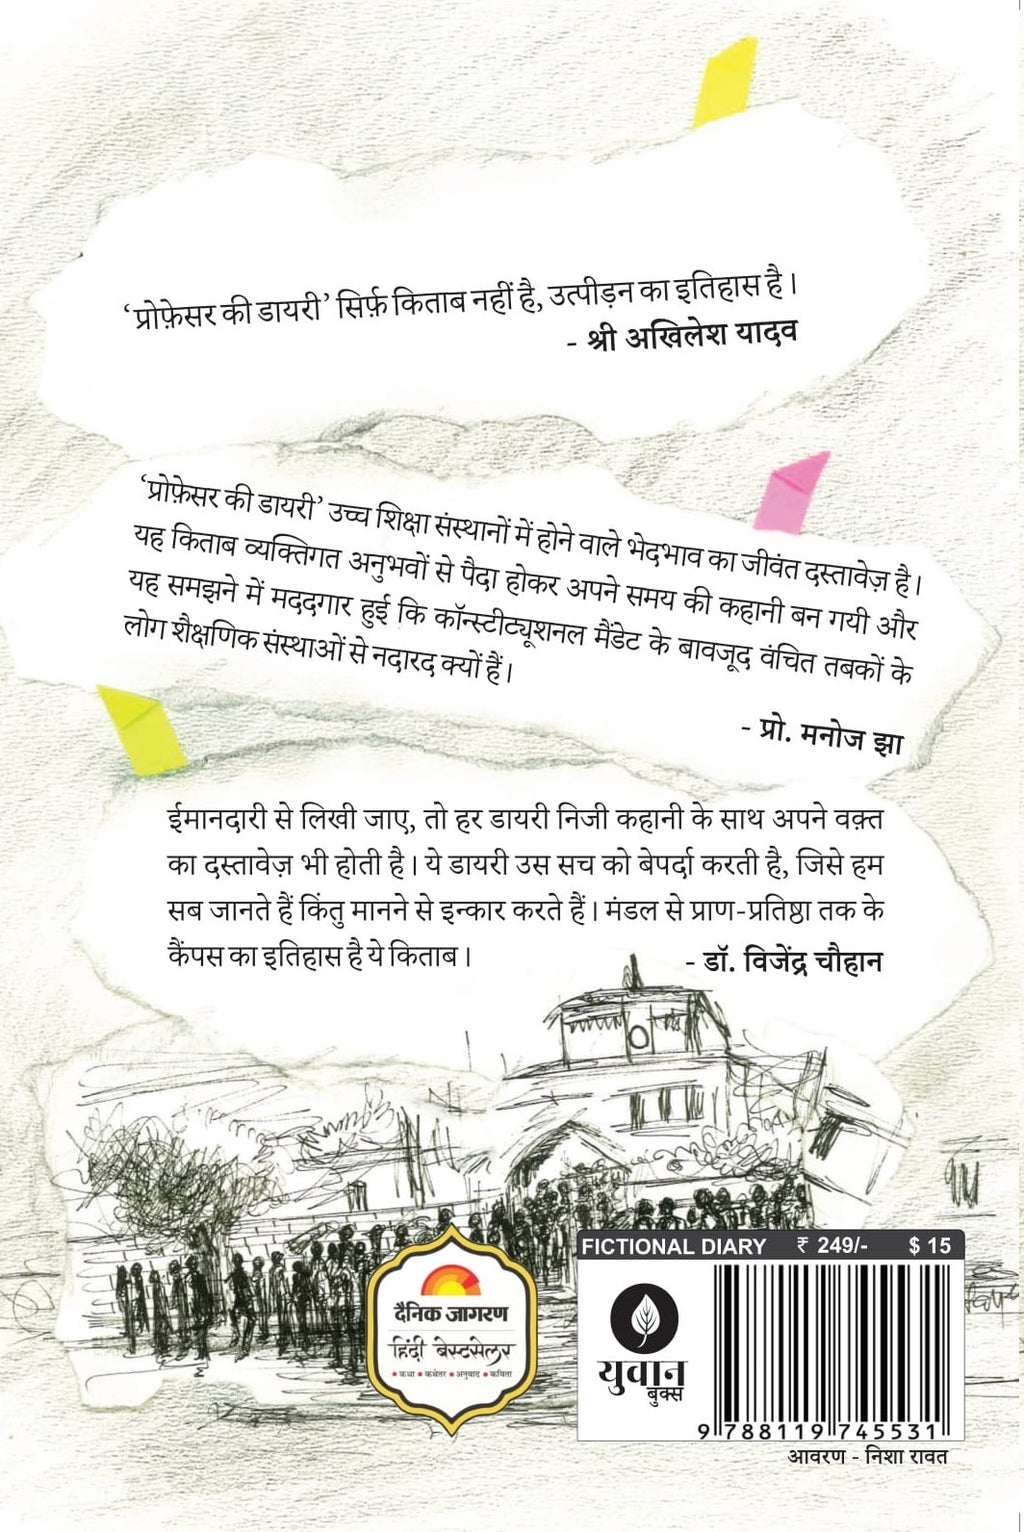 ‘प्रोफ़ेसर की डायरी’ सिर्फ़ किताब नहीं है, उत्पीड़न का इतिहास है।
- श्री अखिलेश यादव
‘प्रोफ़ेसर की डायरी’ उच्च शिक्षा संस्थानों में होने वाले भेदभाव का जीवंत दस्तावेज़ है।
यह किताब व्यक्तिगत अनुभवों से पैदा होकर अपने समय की कहानी बन गयी और
यह समझने में मददगार हुई कि कॉन्स्टीट्यूशनल मैंडेट के बावजूद वंचित तबकों के
लोग शैक्षणिक संस्थाओं से नदारद क्यों हैं।
- प्रो. मनोज झा
ईमानदारी से लिखी जाए, तो हर डायरी निजी कहानी के साथ अपने वक़्त
का दस्तावेज़ भी होती है। ये डायरी उस सच को बेपर्दा करती है, जिसे हम
सब जानते हैं किंतु मानने से इन्कार करते हैं। मंडल से प्राण-प्रतिष्ठा तक के
कैंपस का इतिहास है ये किताब।
- डॉ. विजेंद्र चौहान
दैनिक जागरण
हिंदी बेस्टसेलर
• कथा • कथेतर • अनुवाद • कविता
FICTIONAL DIARY ₹ 249/- $ 15
युवान
बुक्स
9 788119 745531
आवरण - निशा रावत